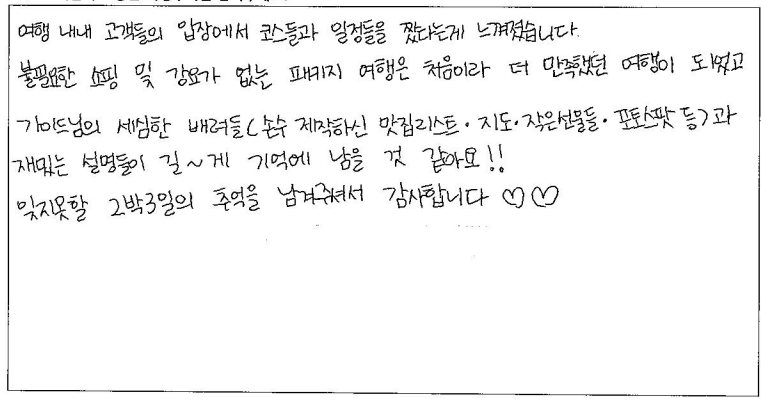 여행 내내 고객들의 입장에서 코스들과 일정들을 짰다는게 느껴졌습니다.
불필요한 쇼핑 및 강요가 없는 패키지 여행은 처음이라 더 만족했던 여행이 되었고
가이드님의 세심한 배려들(손수 제작하신 맛집리스트·지도·작은선물들·포토스팟 등)과
재밌는 설명들이 길~게 기억에 남을 것 같아요!!
잊지못할 2박3일의 추억을 남겨주셔서 감사합니다 ♡♡